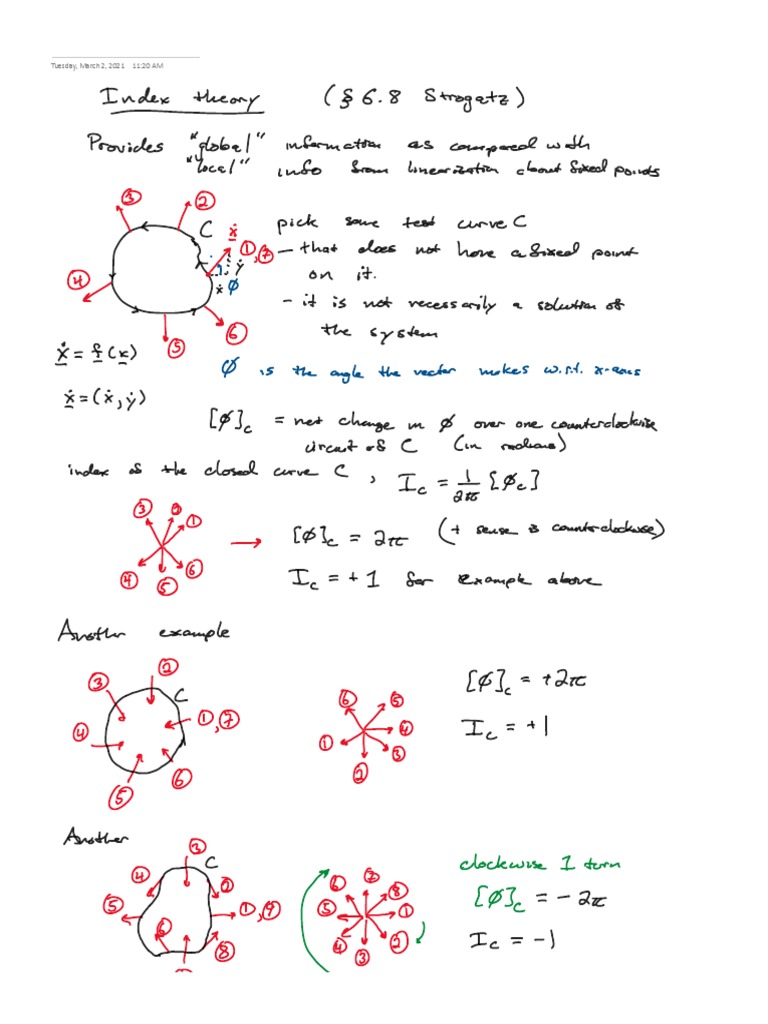 Tuesday, March 2, 2021 11:20 AM
Index theory (§ 6.8 Strogatz)
Provides "global" information as compared with
"local" info from linearization about fixed points
③ ② C ẋ ①,⑦ ẏ ẋ φ ④ ⑤ ⑥
pick some test curve C
– that does not have a fixed point
on it.
– it is not necessarily a solution of
the system
ẋ = f(x)
φ is the angle the vector makes w.r.t. x-axis
ẋ = (ẋ, ẏ)
[φ]c = net change in φ over one counterclockwise
circuit of C (in radians)
index of the closed curve C, Ic = 1/2π [φc]
③ ② ① ④ ⑤ ⑥
→ [φ]c = 2π (+ sense is counterclockwise)
Ic = +1 for example above
Another example
③ ② C ①,⑦ ④ ⑤ ⑥
⑥ ⑤ ④ ① ③ ②
[φ]c = +2π
Ic = +1
Another
③ C ④ ② ⑤ ①,⑨ ⑥ ⑧
⑥ ⑦ ⑧ ⑤ ① ④ ③ ②
clockwise 1 turn
[φ]c = -2π
Ic = -1